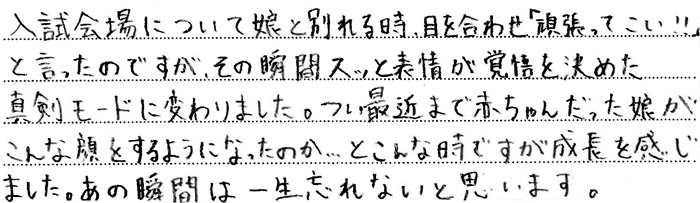 入試会場について娘と別れる時、目を合わせ「頑張ってこい!!」
と言ったのですが、その瞬間スッと表情が覚悟を決めた
真剣モードに変わりました。つい最近まで赤ちゃんだった娘が
こんな顔をするようになったのか…とこんな時ですが成長を感じ
ました。あの瞬間は一生忘れないと思います。